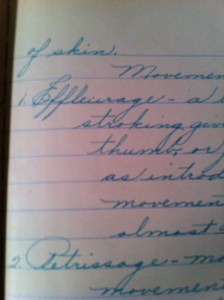 of skin.
Movemen
1. Effleurage - a
stroking, giv
thumb, or
as introd
movemen
almost
2. Petrissage - mo
movemen